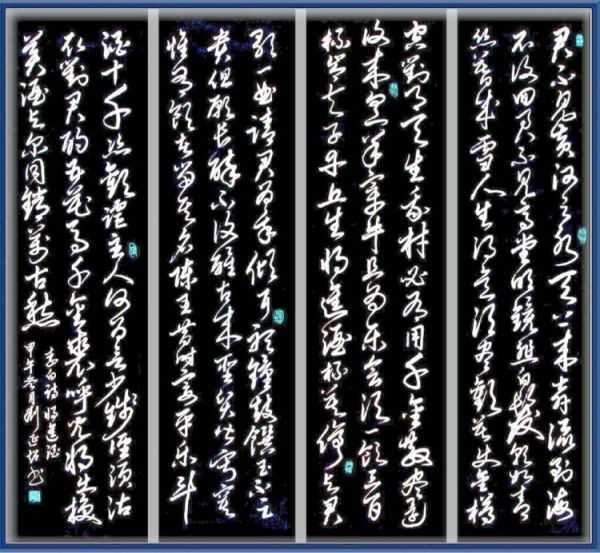 君不见黄河之水天上来奔流到海
不復回君不见高堂明镜悲白髮朝如青
丝暮成雪人生得意须尽歡莫使金樽
空對月天生我材必有用千金散尽還
復来烹羊宰牛且为乐会须一饮三百
杯岑夫子丹丘生将進酒杯莫停与君
歌一曲请君为我倾耳聽鐘鼓馔玉不足
貴但願长醉不復醒古来聖贤皆寂寞
惟有饮者留其名陈王昔时宴平乐斗
酒十千恣歡谑主人何为言少钱径须沽
取對君酌五花马千金裘呼儿将出换
美酒与尔同销萬古愁
李白诗将進酒
甲午冬月刘延书